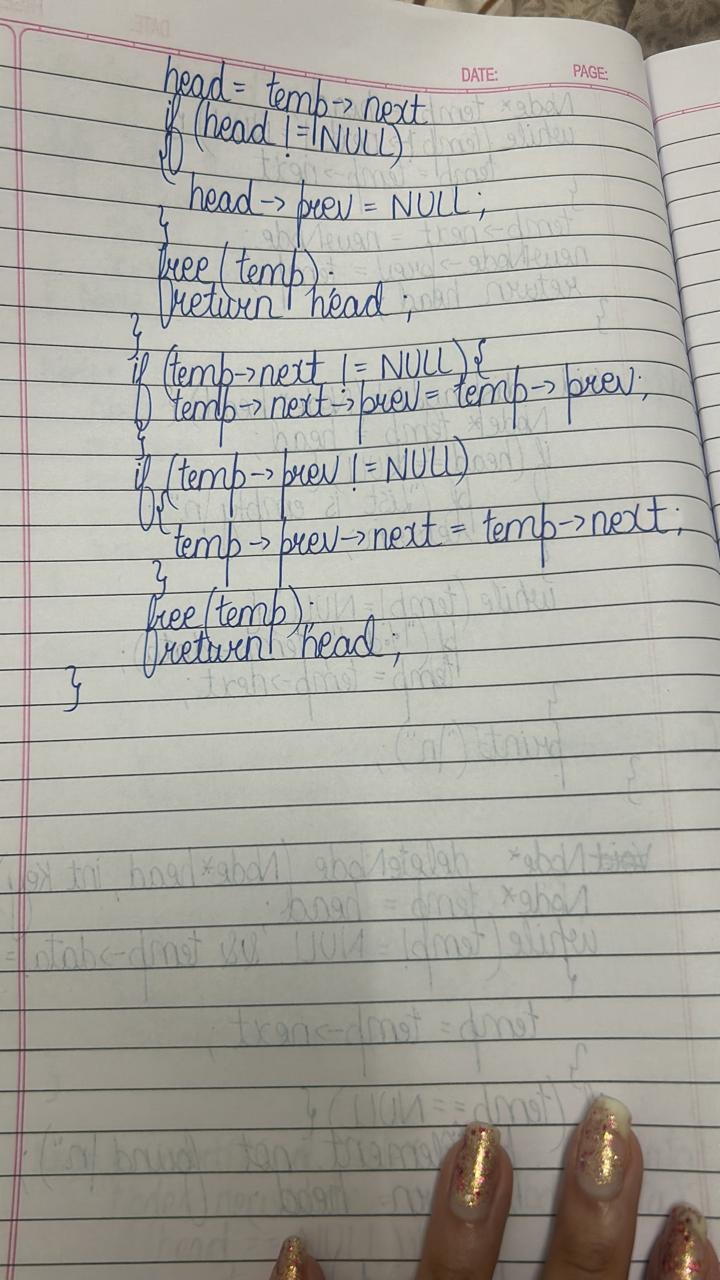 DATE: PAGE:
head = temp→next
if (head != NULL)
{
head → prev = NULL;
}
free (temp);
return head ;
}
if (temp→next != NULL){
temp→next→prev = temp→prev;
}
if (temp→prev != NULL)
{
temp→prev→next = temp→next;
}
free (temp);
return head ;
}